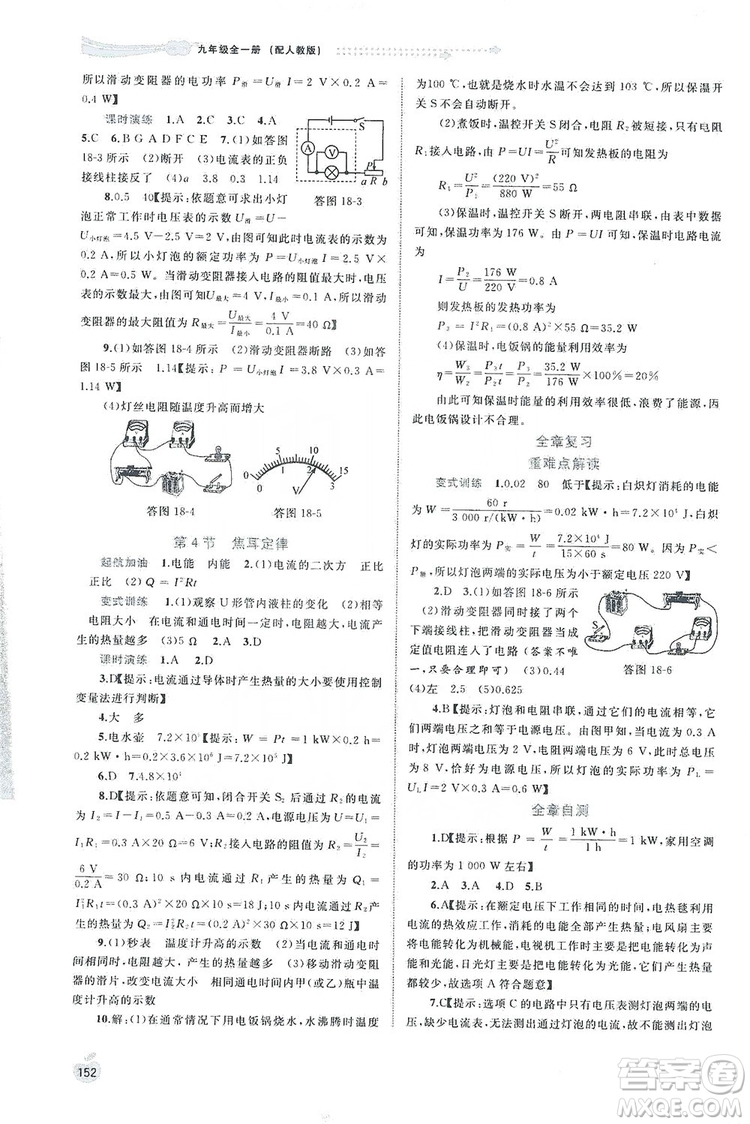 九年级全一册 (配人教版)
所以滑动变阻器的电功率 P滑=I²R滑=(0.2 A)²×10 Ω=
0.4 W】
课时演练 1.A 2.C 3.A 4.A
5.C 6.B G A D F C E 7.(1)如答图
18-3 所示 (2)断开 (3)电流表的正负
接线柱接反了 (4)a 3.8 0.3 1.14
A V S a R b
答图 18-3
8.0.5 40【提示:依题意可求出小灯
泡正常工作时电压表的示数 U=U总-
U小灯泡=5 V-2.5 V=2.5 V,此时电流表的示数为
0.2 A,所以小灯泡的额定功率 P=U小灯泡 I=2.5 V×
0.2 A=0.5 W。当滑动变阻器接入电路的阻值最大时,电压
表的示数最大,由图可知U最大=4 V,I最小=0.1 A,所以滑动
变阻器的最大阻值 R最大=U最大/I最小=4 V/0.1 A=40 Ω】
9.(1)如答图 18-4 所示 (2)滑动变阻器断路 (3)如
答图 18-5 所示 1.14【提示:P=U小灯泡 I=3.8 V×0.3 A=
1.14 W】
(4)灯丝电阻随温度升高而增大
答图 18-4
0 1 2 3 5 10 15 V
答图 18-5
第 4 节 焦耳定律
起航加油 1.电能 内能 2.(1)电流的二次方 正比
正比 (2)Q=I²Rt
变式训练 1.(1)观察 U 形管内液柱的变化 (2)相等
电阻大小 在电流和通电时间一定时,导体的电阻越大,产
生的热量越多 (3)5 Ω 2.A 3.D
课时演练 1.A 2.D
3.D【提示:电流通过导体时产生热量的大小要使用控制
变量法进行判断】
4.大 多
5.电水壶 7.2×10⁵【提示:W=Pt=1 kW×0.2 h=
0.2 kW·h=0.2×3.6×10⁶ J=7.2×10⁵ J】
6.D 7.4.8×10⁵
8.12【提示:依题意可知,闭合开关 S₂ 后通过 R₂ 的电流
为 I₂=I-I₁=0.5 A-0.3 A=0.2 A,电源电压为 U=U₁=
I₁R₁=0.3 A×20 Ω=6 V,U₂=U=6 V,所以 R₂=U₂/I₂=
6 V/0.2 A=30 Ω;10 s 内电流通过 R₁ 产生的热量 Q₁=
I₁²R₁t=(0.3 A)²×20 Ω×10 s=18 J;10 s 内电流通过 R₂ 产
生的热量 Q₂=I₂²R₂t=(0.2 A)²×30 Ω×10 s=12 J】
9.(1)秒表 温度计升高的示数 (2)电流和通电时间相
同时,电阻越大,产生的热量越多 (3)移动滑动变阻器
的滑片,改变电流大小 同一时间内甲(或乙)瓶中温
度计升高的示数
10.解:(1)在通常情况下用电饭锅烧水,水沸腾时温度
为100 ℃,也就是烧水时水温不会达到 103 ℃,所以保温开
关 S 不会自动断开。
(2)煮饭时,温控开关 S 闭合,电阻 R₂ 被短接,只有电阻
R₁ 接入电路,由 P=U²/R 可知发热板的电阻为
R₁=U²/P₁=(220 V)²/880 W=55 Ω
(3)保温时,温控开关 S 断开,两电阻串联,由题意知,此
时电路的总功率为 176 W。由 P=UI 可知保温时电路电流
为
I=P₂/U=176 W/220 V=0.8 A
则发热板的发热功率为
P₃=I²R₁=(0.8 A)²×55 Ω=35.2 W
(4)保温时,电饭锅工作的能量利用效率为
η=W₃/W₂=P₃t/P₂t=P₃/P₂=35.2 W/176 W×100%=20%
由此可知保温时能量的利用效率很低,浪费了能源,因
此电饭锅设计不合理。
全章复习
重难点解读
变式训练 1.0.02 80 低于【提示:白炽灯消耗的电能
为 W=60 r/3 000 r/(kW·h)=0.02 kW·h=7.2×10⁴ J,白炽
灯的实际功率为 P实=W/t=7.2×10⁴ J/15×60 s=80 W,因为 P实<
P额,所以灯泡两端的实际电压为小于额定电压 220 V】
2.D 3.(1)如答图 18-6 所示
(2)滑动变阻器同时接了两个
下端接线柱,把滑动变阻器当成
定值电阻连入了电路(答案不唯
一,只要合理即可) (3)0.44
(4)左 2.5 (5)0.625
S
答图 18-6
4.B【提示:灯泡和电阻串联时,通过它们的电流相等,
它们两端的电压和等于电源电压。由图甲知,当电流为0.3 A
时,灯泡两端的电压为 2 V,电阻两端的电压为 6 V,其和
为 8 V,恰好为电源电压,所以,灯泡的实际功率 PL=
ULI=2 V×0.3 A=0.6 W】
全章自测
1.D【提示:根据 P=W/t=1 kW·h/1 h=1 kW,家用空调
的功率约为 1 000 W左右】
2.A 3.A 4.D 5.B
6.A【提示:在额定电压下工作相同的时间,电热毯利用
电流的热效应工作,消耗的电能全部产生热量;电风扇主
要将电能转化为机械能,电视机工作时主要将电能转化为声
能和光能,日光灯主要把电能转化为光能,它们产生的热量
都较少。所以,产生热量最多的是电热毯。综合题意知选A】
7.C【提示:选项 C 的电路中没有电压表测灯泡两端的电
压,缺少电压或电流,无法测出灯泡的实际功率,所以不能
152
作业帮